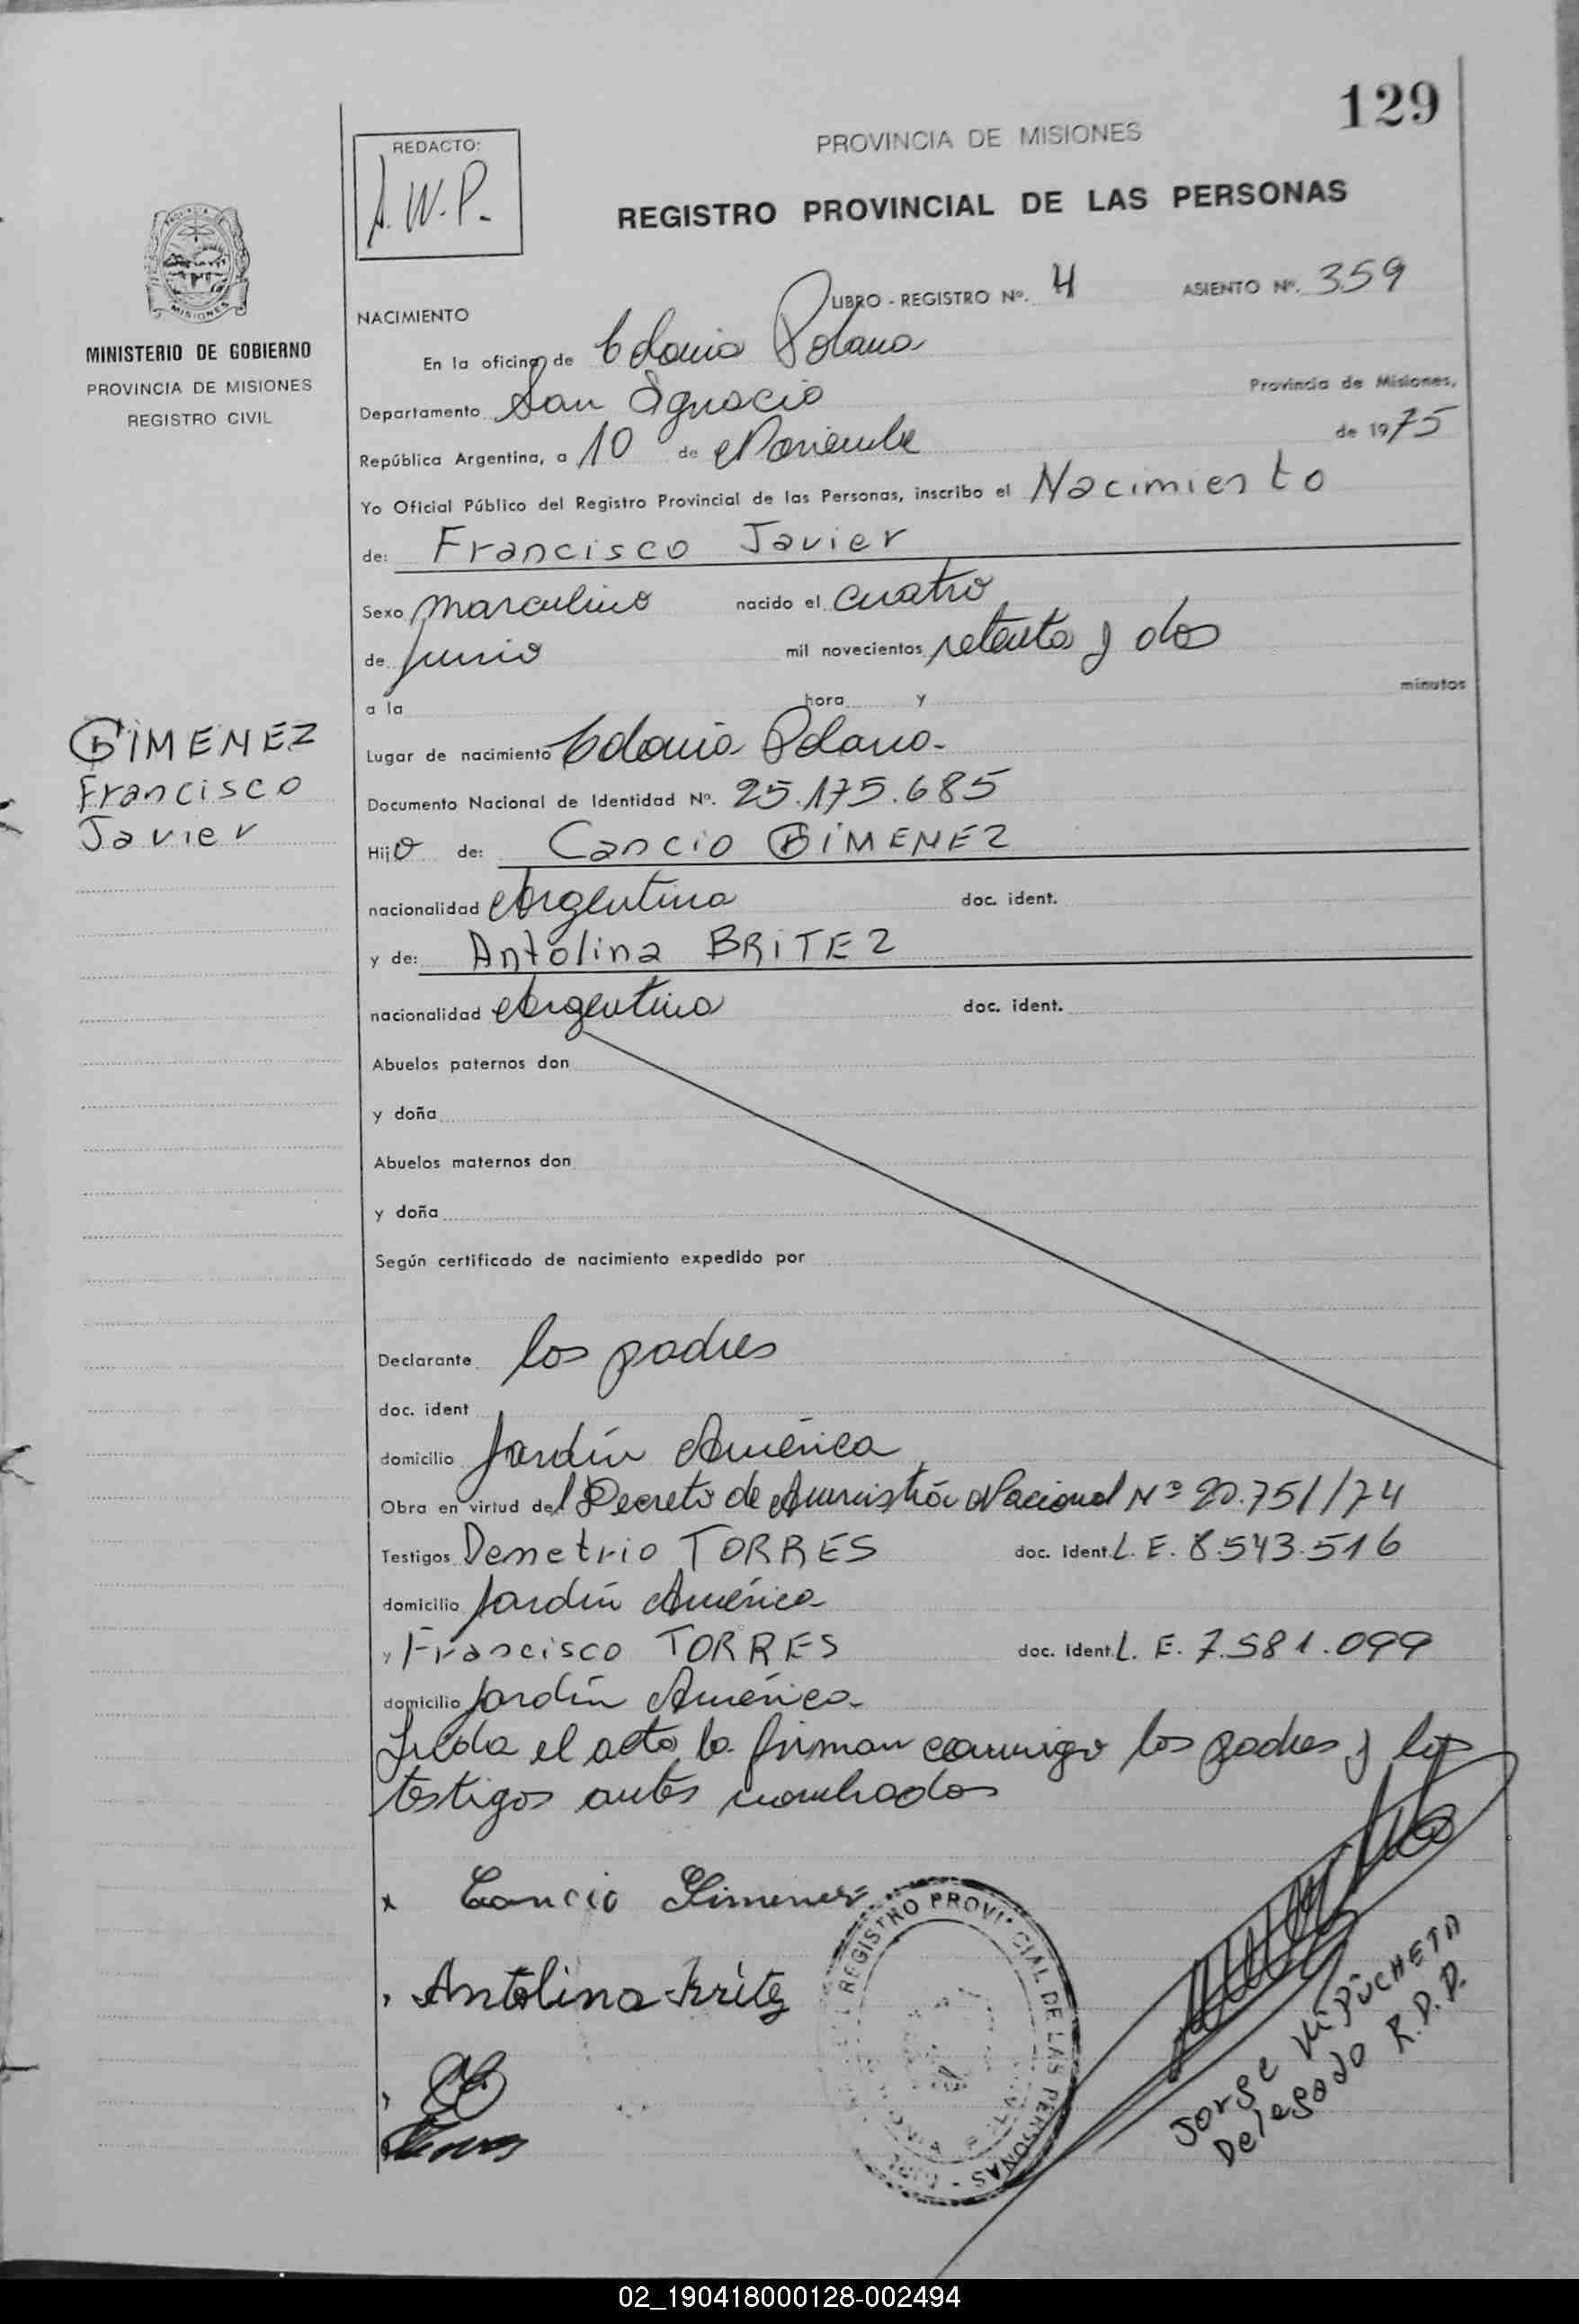 129
REDACTO:
A.W.P.
PROVINCIA DE MISIONES
REGISTRO PROVINCIAL DE LAS PERSONAS
MISIONES
MINISTERIO DE GOBIERNO
PROVINCIA DE MISIONES
REGISTRO CIVIL
GIMENEZ
Francisco
Javier
LIBRO - REGISTRO Nº. 4 ASIENTO Nº. 359
NACIMIENTO
En la oficina de Colonia Polana
Departamento San Ignacio Provincia de Misiones,
República Argentina, a 10 de Noviembre de 1975
Yo Oficial Público del Registro Provincial de las Personas, inscribo el Nacimiento
de: Francisco Javier
Sexo masculino nacido el cuatro
de junio mil novecientos setenta y dos
a la hora y minutos
Lugar de nacimiento Colonia Polana.
Documento Nacional de Identidad Nº. 25.175.685
Hijo de: Cancio GIMENEZ
nacionalidad Argentina doc. ident.
y de: Antolina BRITEZ
nacionalidad Argentina doc. ident.
Abuelos paternos don
y doña
Abuelos maternos don
y doña
Según certificado de nacimiento expedido por
Declarante los padres
doc. ident
domicilio Jardín América
Obra en virtud del Decreto de Amnistía Nacional Nº 20.751/74
Testigos Demetrio TORRES doc. ident. L. E. 8.543.516
domicilio Jardín América
y Francisco TORRES doc. ident. L. E. 7.581.099
domicilio Jardín América
Leída el acta la firman conmigo los padres y los
testigos antes nombrados
x Cancio Gimenez
Antolina Britez
REGISTRO PROVINCIAL DE LAS PERSONAS
Jorge PUCHETA
Delegado R.D.P.
02_190418000128-002494